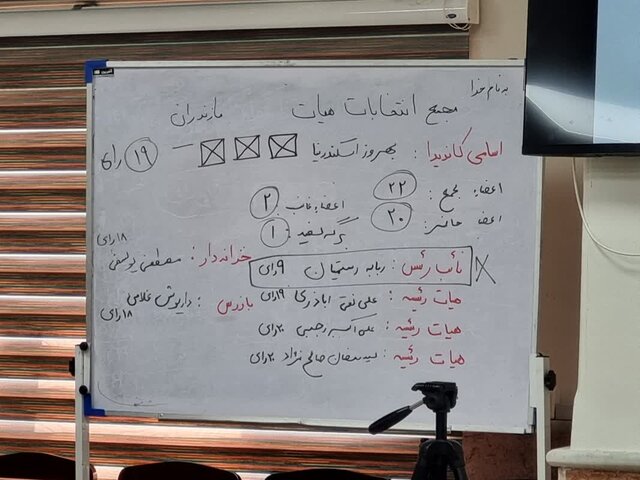 به نام خدا
مجمع انتخابات هیات مازندران
اسامی کاندیدا : بهروز اسکندرنیا — ۱۹ رای
اعضاء مجمع : ۲۲
اعضاء غایب ۲
اعضا حاضر : ۲۰
برگه سفید : ۱
نائب رئس : ربابه رستمیان ۹ رای
خزانه دار : مصطفی یوسفی ۱۸ رای
هیات رئیسه : علی نقی اباذری ۱۹ رای
بازرس : داریوش غلامی ۱۸ رای
هیات رئیسه : علی اکبر رجبی ۲۰ رای
هیات رئیسه : صالح نژاد ۲۰ رای